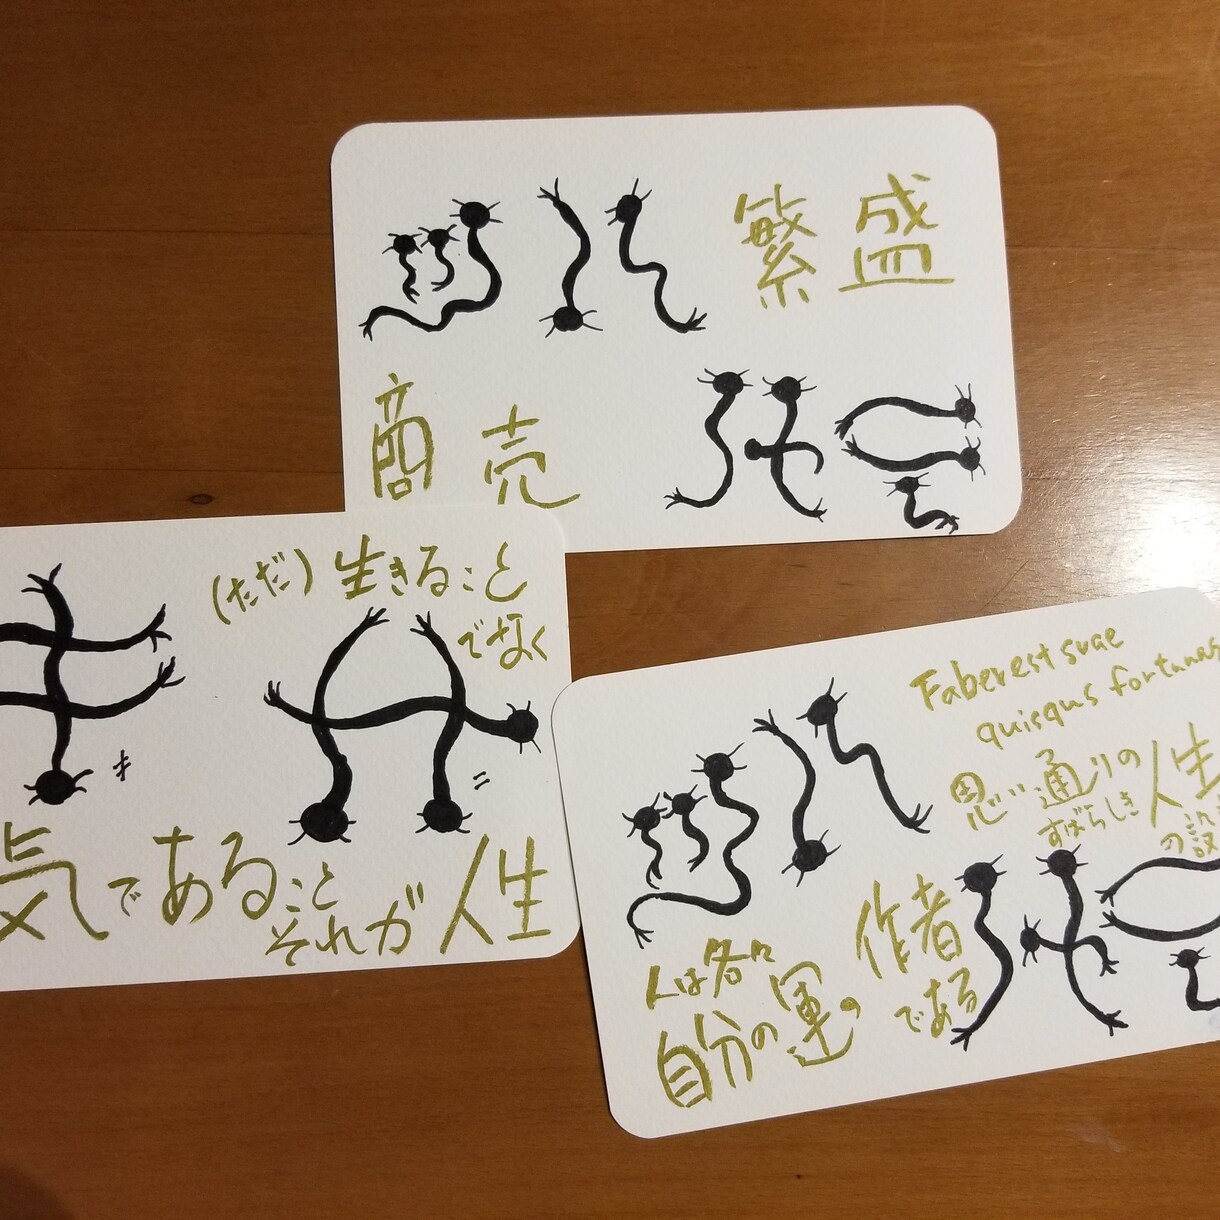 繁盛
商売
(ただ)生きること
でなく
キ
ニ
気であること
それが人生
Faber est suae
quisqus fortunas
思い通りの
すばらしき人生
の設
人は各々
自分の運の
作者
である